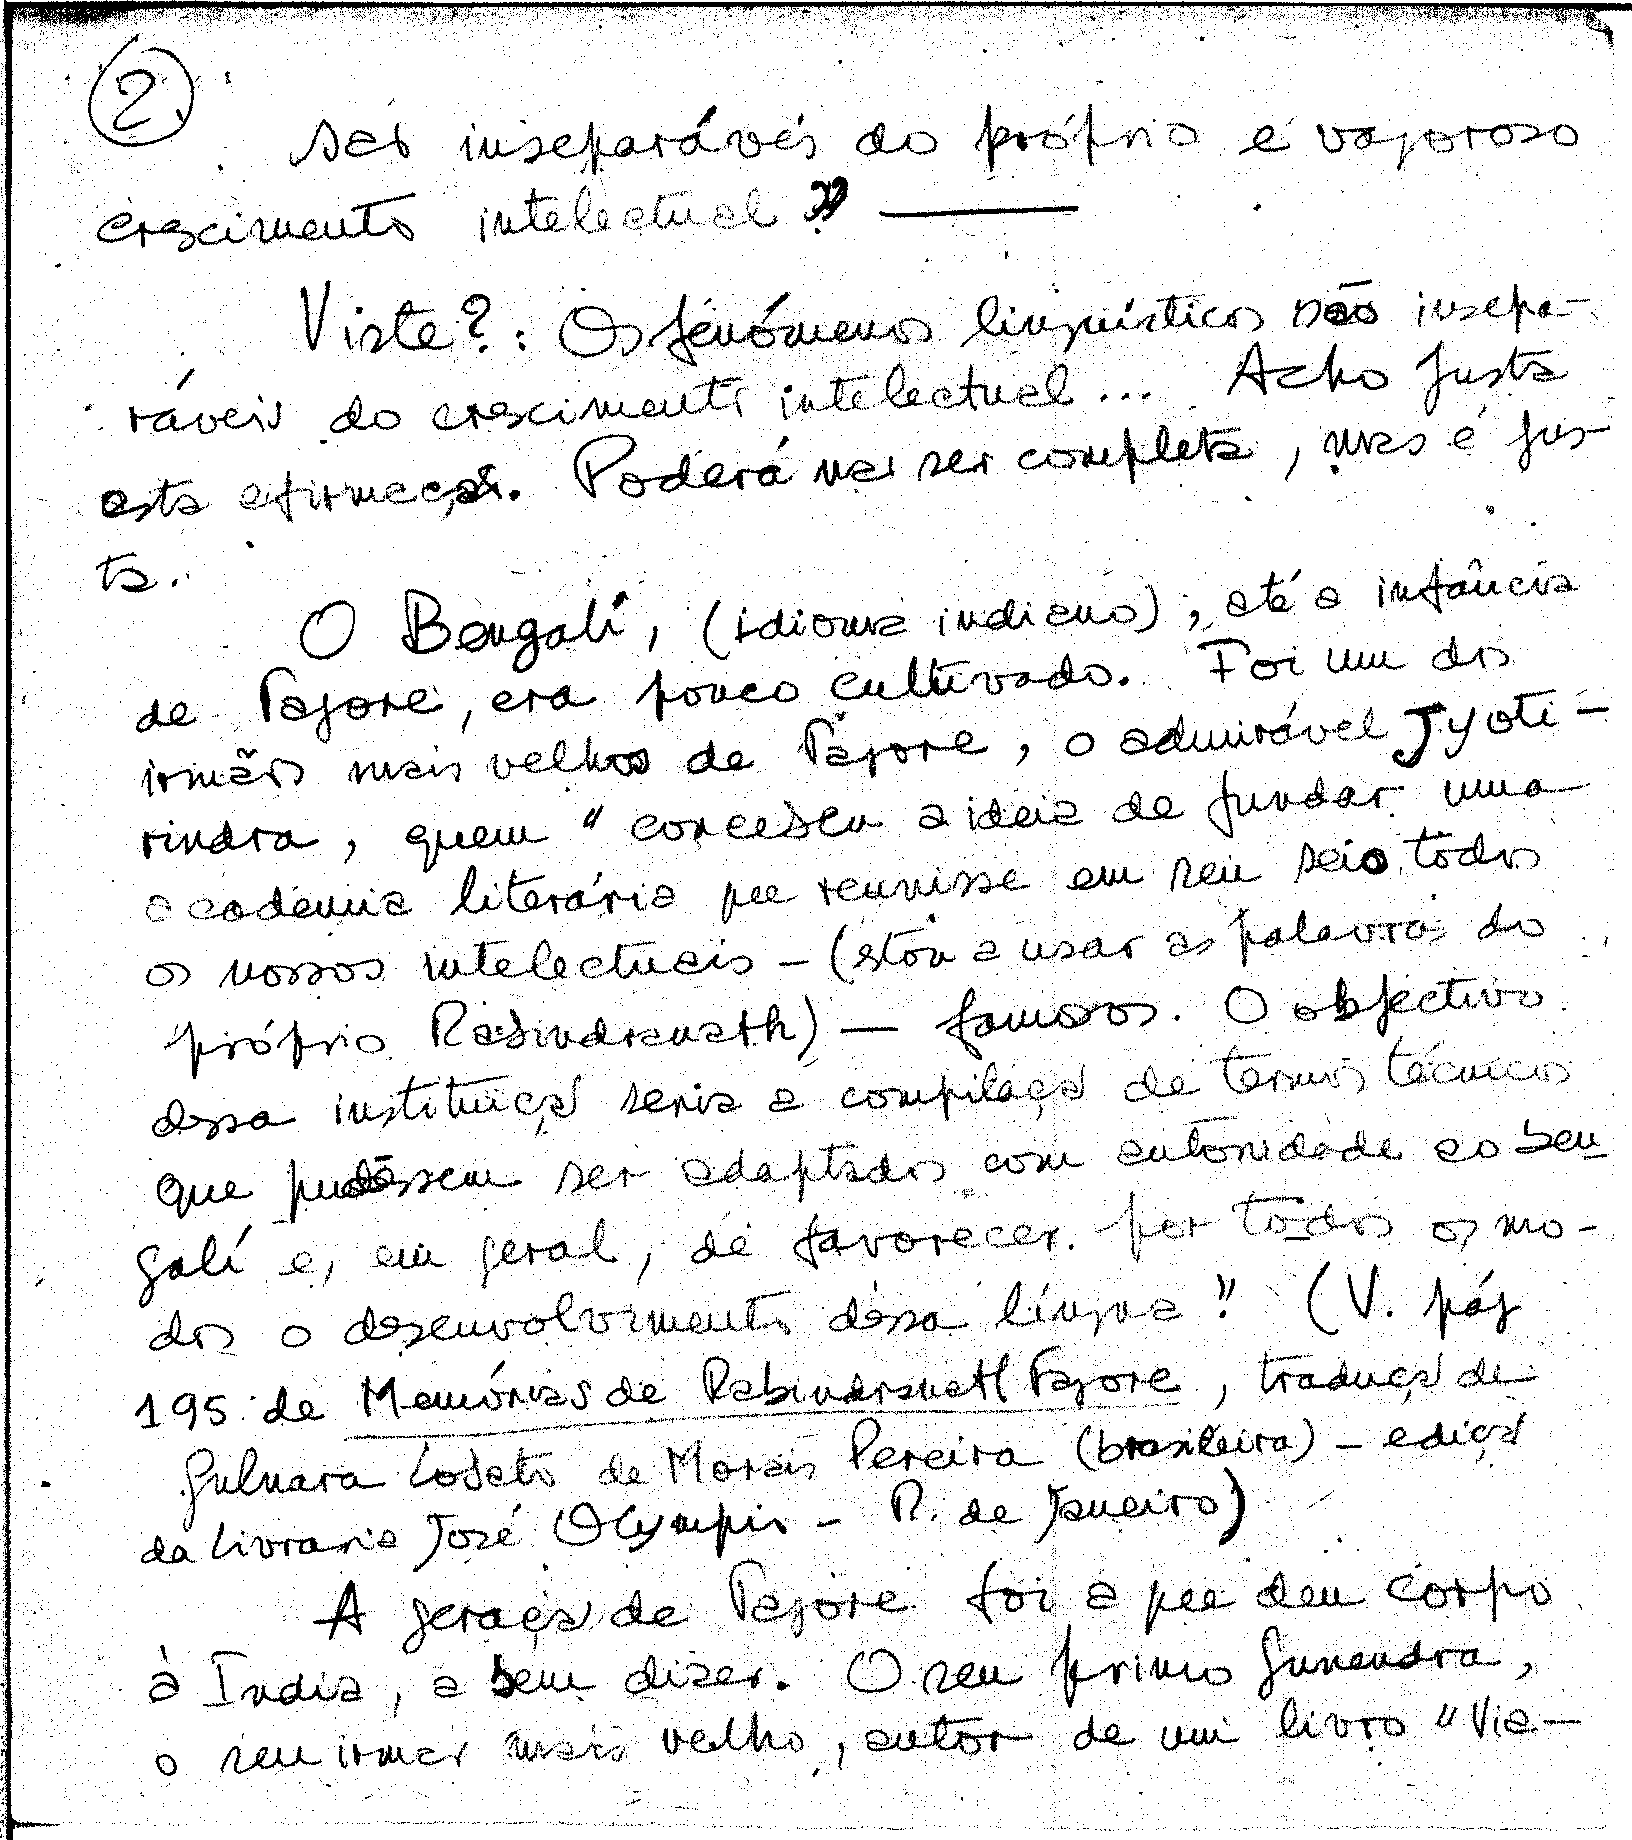 2
são inseparáveis do próprio e vagoroso
crescimento intelectual?" ———
Viste?: Os fenómenos linguísticos são insepa-
ráveis do crescimento intelectual... Acho justa
esta afirmação. Poderá não ser completa, mas é jus-
ta.
O Bengalí, (idioma indiano), até a infância
de Tagore, era pouco cultivado. Foi um dos
irmãos mais velhos de Tagore, o admirável Jyoti-
rindra, quem "concebeu a ideia de fundar uma
academia literária que reunisse em seu seio todos
os nossos intelectuais - (estou a usar as palavras do
próprio Rabindranath) — famosos. O objectivo
dessa instituição seria a compilação de termos técnicos
que pudessem ser adaptados com autoridade ao ben
galí e, em geral, de favorecer por todos os mo-
dos o desenvolvimento dessa língua". (V. pág
195 de Memórias de Rabindranath Tagore, tradução de
Gulnara Lobato de Morais Pereira (brasileira) - edição
da Livraria José Olympio - R. de Janeiro)
A geração de Tagore foi a que deu corpo
à Índia, a bem dizer. O seu primo Gunendra,
o seu irmão mais velho, autor de um livro "Via-